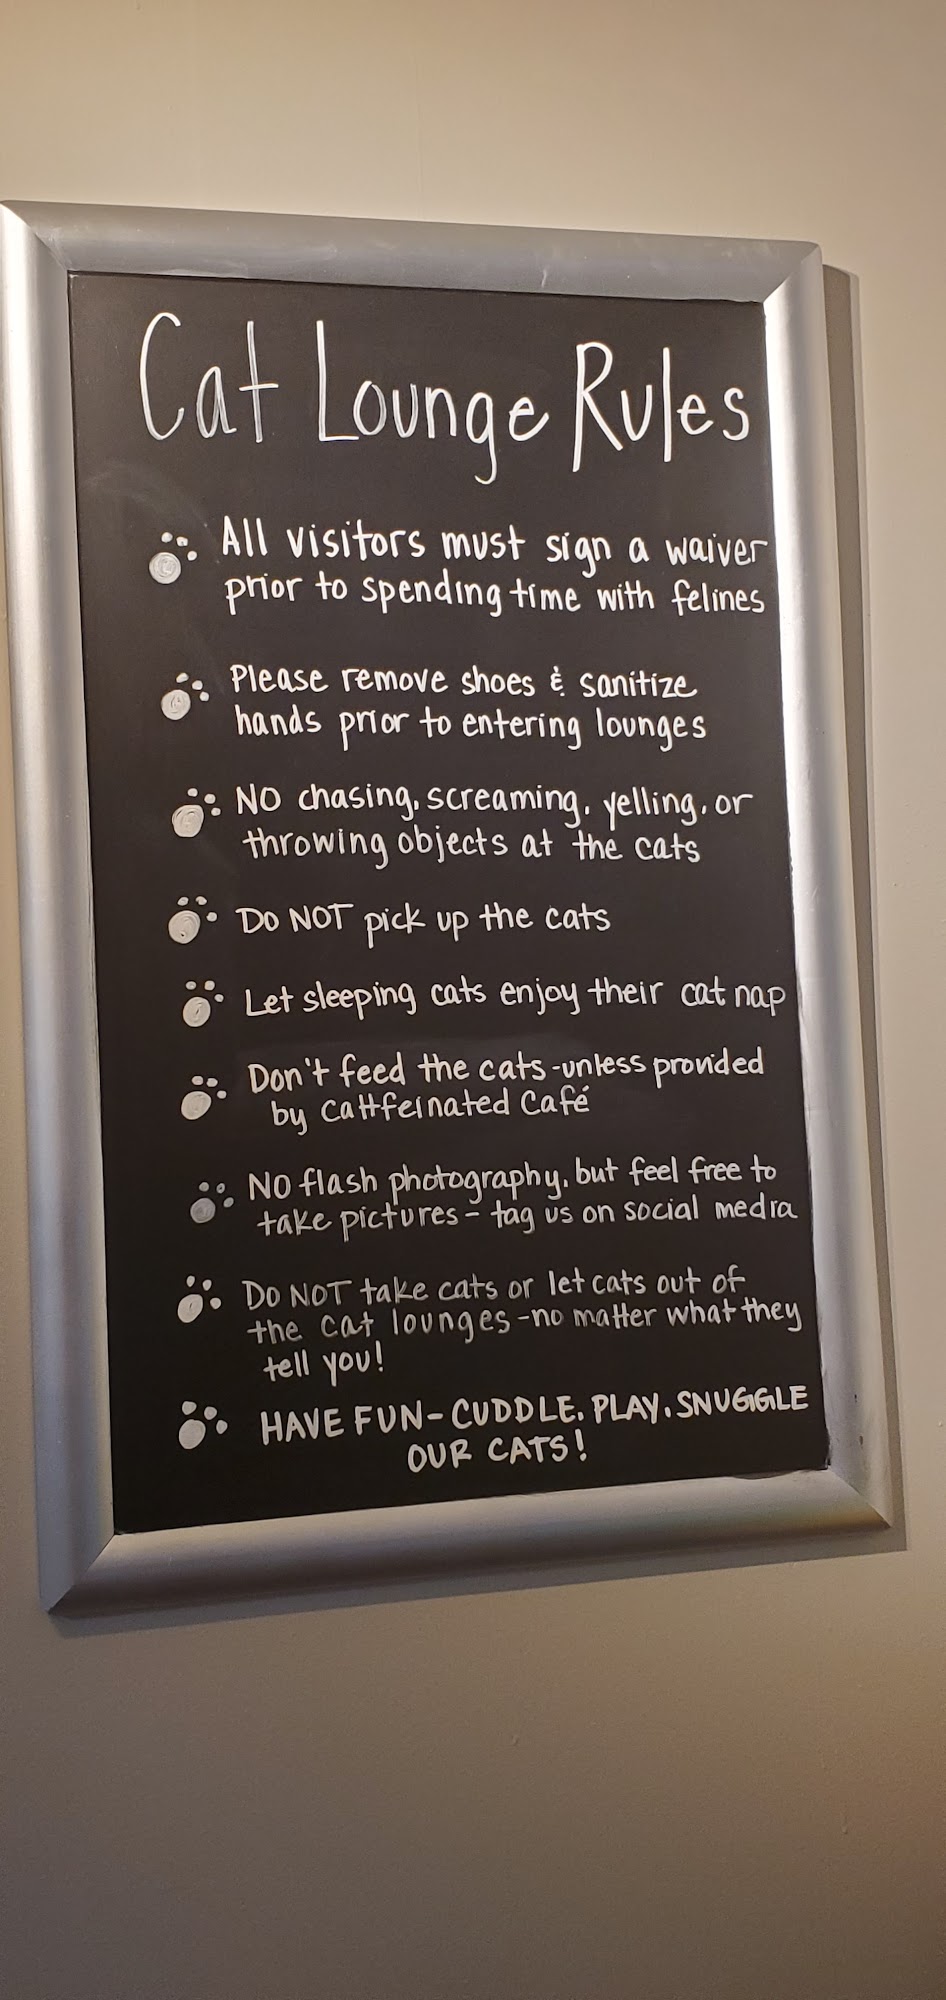 Cat Lounge Rules
All visitors must sign a waiver
prior to spending time with felines
Please remove shoes & sanitize
hands prior to entering lounges
NO chasing, screaming, yelling, or
throwing objects at the cats
DO NOT pick up the cats
Let sleeping cats enjoy their cat nap
Don't feed the cats - unless provided
by Cattfeinated Café
No flash photography, but feel free to
take pictures - tag us on social media
DO NOT take cats or let cats out of
the cat lounges - no matter what they
tell you!
HAVE FUN - CUDDLE, PLAY, SNUGGLE
OUR CATS!